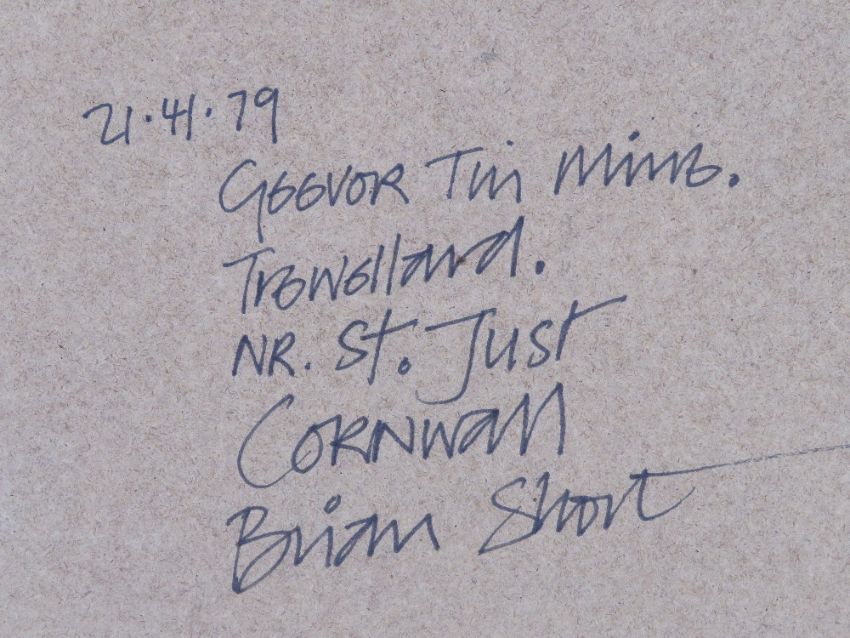 21.4.79
Geevor Tin Mine.
Trewellard.
NR. St. Just
Cornwall
Brian Short